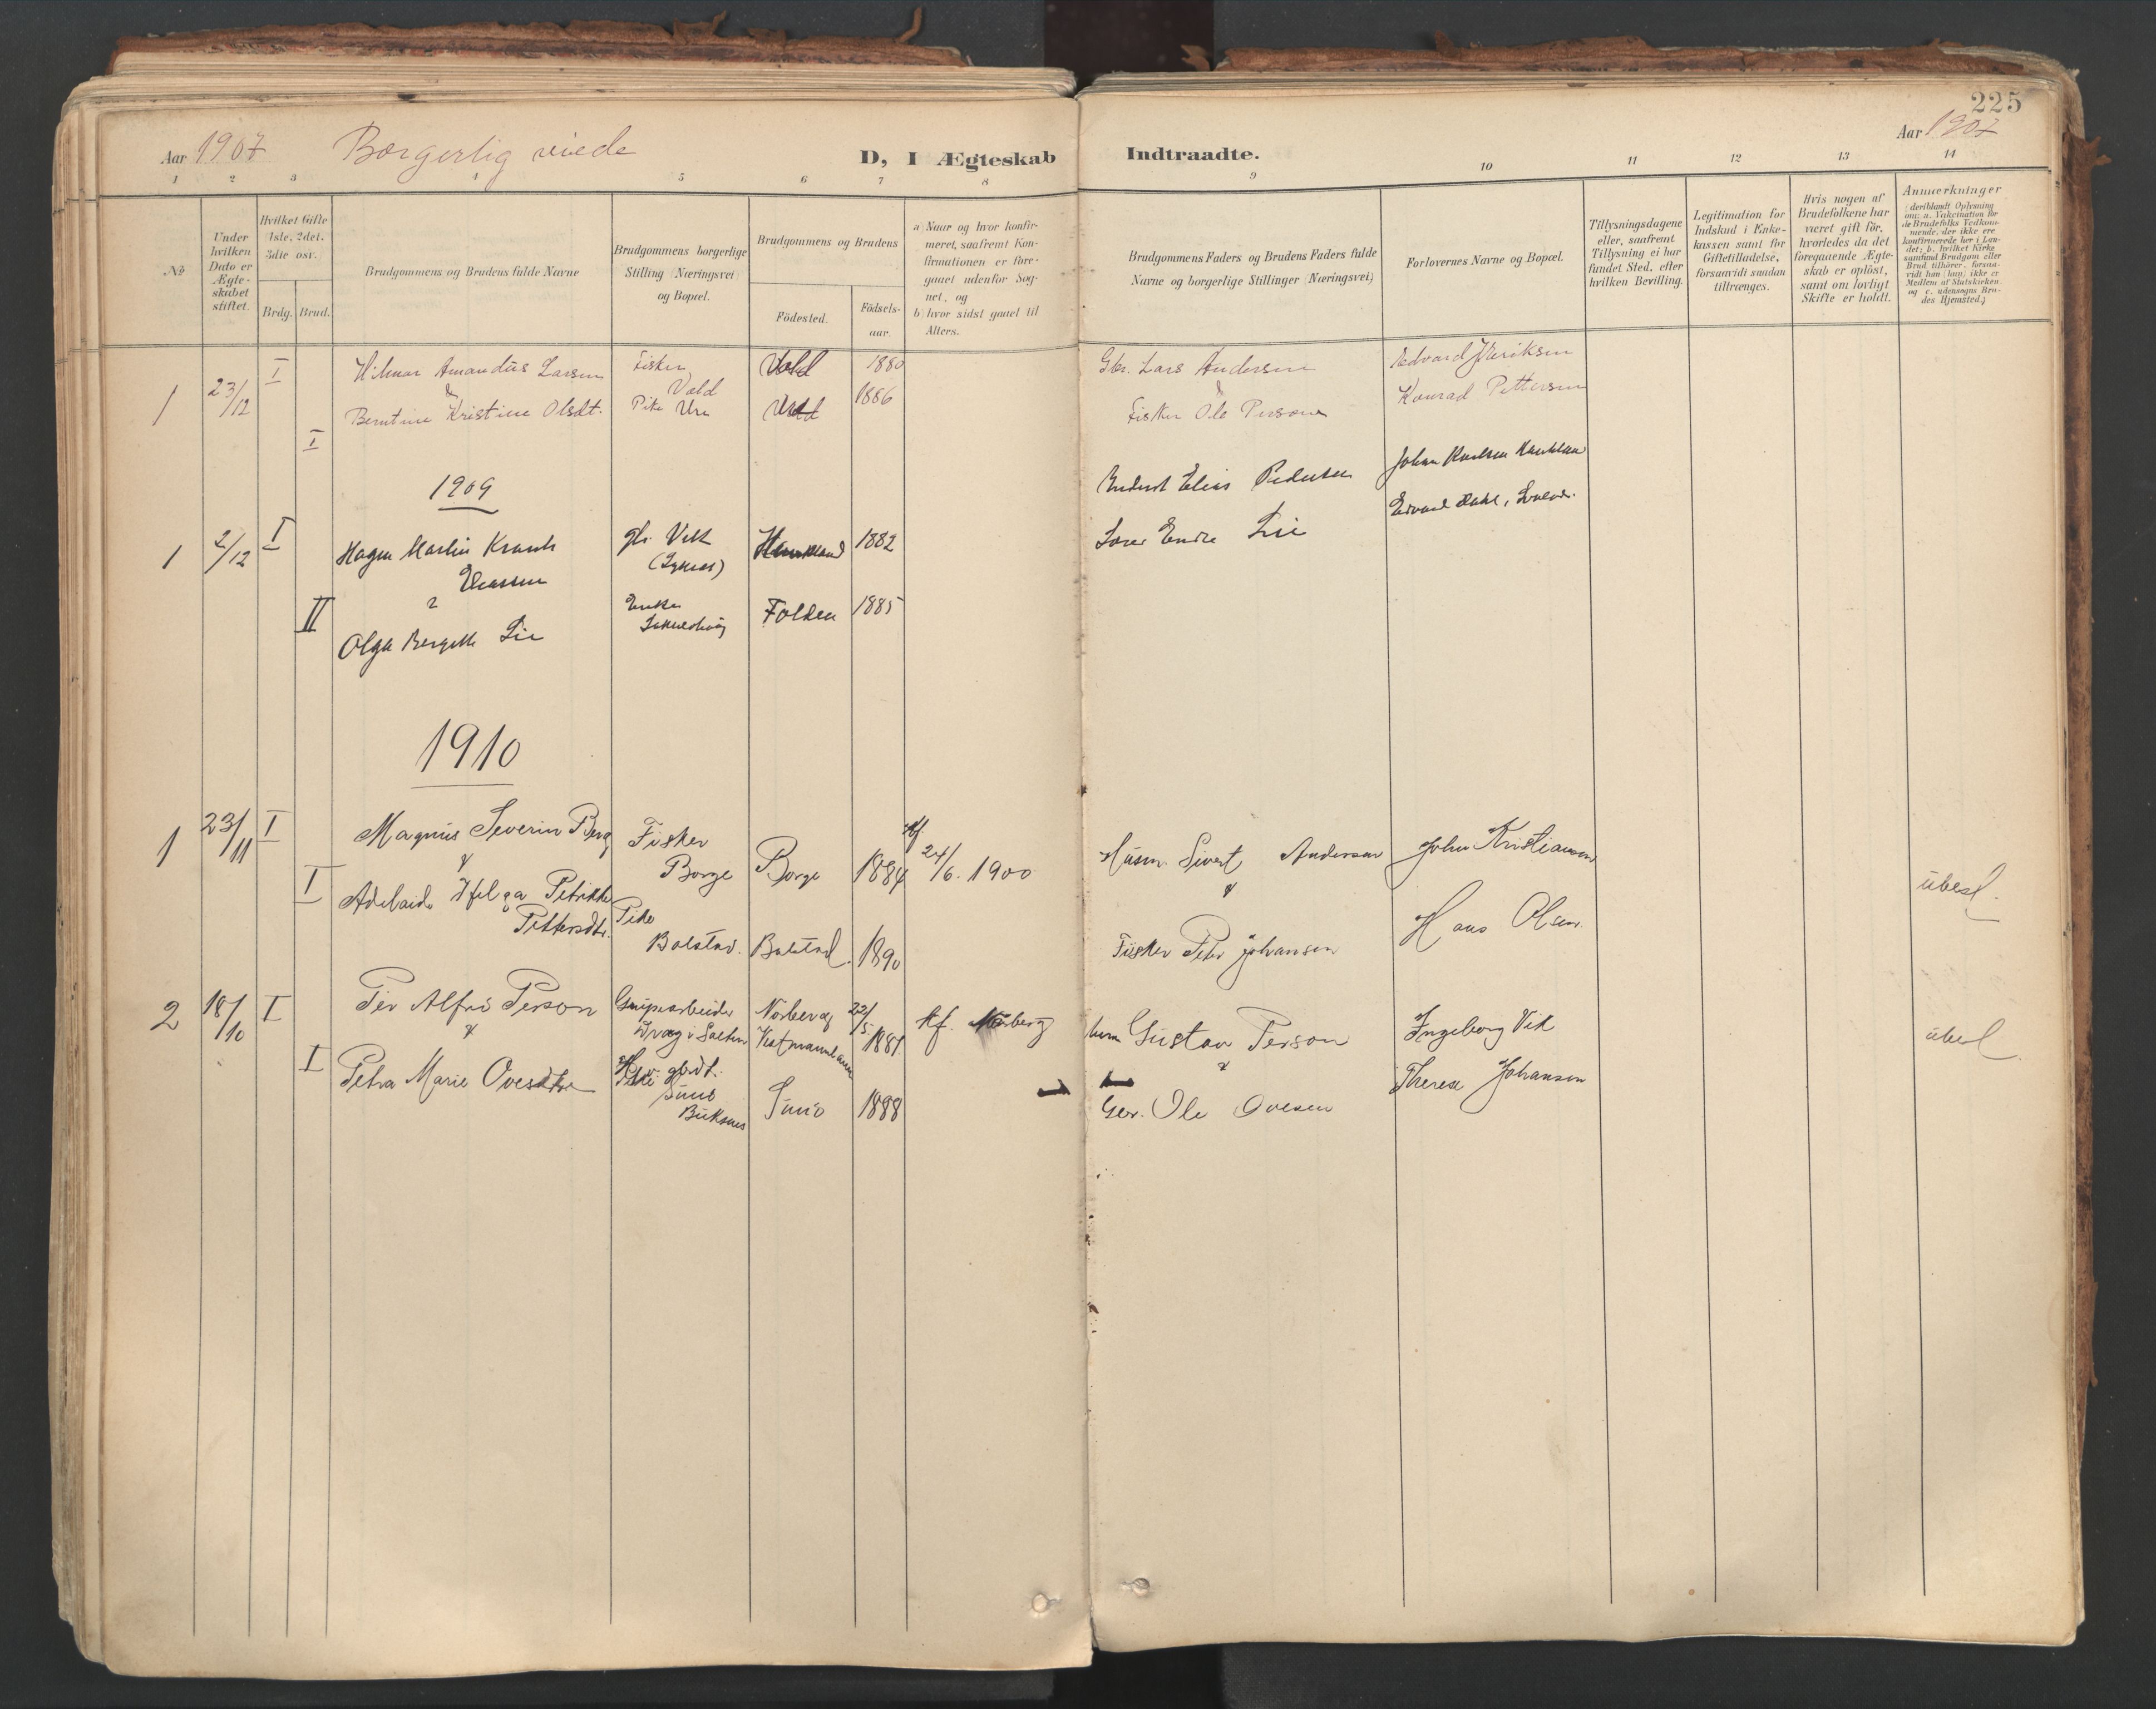 225
Aar 1907 Borgerlig viede D, I Ægteskab Indtraadte. Aar 1907
1 2 3 4 5 6 7 8 9 10 11 12 13 14
No
Under hvilken Dato er Ægteskabet stiftet.
Hvilket Gifte 1ste, 2det, 3die osv.
Brdg. Brud.
Brudgommens og Brudens fulde Navne
Brudgommens borgerlige Stilling (Næringsvei) og Bopæl.
Brudgommens og Brudens
Födested.
Födsels-aar.
a) Naar og hvor konfir-
meret, saafremt Kon-
firmationen er fore-
gaaet udenfor Sog-
net, og
b) hvor sidst gaaet til
Alters.
Brudgommens Faders og Brudens Faders fulde
Navne og borgerlige Stillinger (Næringsvei)
Forlovernes Navne og Bopæl.
Tillysningsdagene
eller, saafremt
Tillysning ei har
fundet Sted, efter
hvilken Bevilling.
Legitimation for
Indskud i Enke-
kassen samt for
Giftetilladelse,
forsaavidt saadan
tiltrænges.
Hvis nogen af
Brudefolkene har
været gift för,
hvorledes da det
foregaaende Ægte-
skab er oplöst,
samt om lovligt
Skifte er holdt.
Anmærkninger
(deriblandt Oplysning
om: a. Vakcination for
de Brudefolks Vedkom-
mende, der ikke ere
konfirmerede her i Lan-
det; b. hvilket Kirke-
samfund Brudgom eller
Brud tilhörer, forsaa-
vidt han (hun) ikke er
Medlem af Statskirken,
og c. udensogns Bru-
des Hjemsted.)
1 23/12 I Hilmar Amandus Larsen Fisker Vold 1880 Gbr. Lars Andersen Edvard Henriksen
& Vold
I Berntine Kristine Olsdt. Pike Ure 1886 Fisker Ole Person Konrad Pettersen
1909
1 2/12 I Hagen Martin Krauch gbr. Vik 1882 Elias Pedersen Johan
Eliassen Edvard Dahl,
II Olga Bergette Lie Enke Folden 1885 Endre Lie
1910
1 23/11 I Magnus Severin Berg Fisker Borge Borge 1884 Kf 24/6. 1900 Husm. Sivert Andersen John Kristiansen
& &
I Adelaide Helga Petrikke Pike
Pettersdtr. Bolstad. Bolstad. 1890 Fisker Peter Johansen Hans Olsen ubesl.
2 18/10 I Per Alfred Person Grubearbeider Norberg 22/5 1881 Kf. Norberg Gustav Person Ingeborg Vik ubesl.
& Drag i Salten &
I Petra Marie Ovesdtr Pike Sund Buksnes Sund 1888 Gbr. Ole Ovesen Therese Johansen